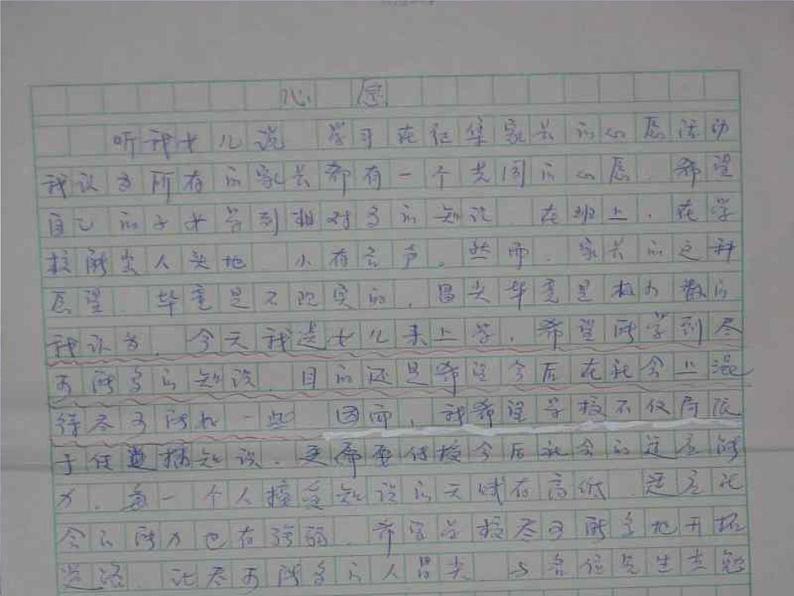 心愿
听我女儿说 学习在征集家长的心愿活动
我认为所有的家长都有一个共同的心愿.希望
自己的子女学到相对多的知识 在班上.在学
校能出人头地 小有名声.然而.家长的这种
愿望.毕竟是不现实的.冒尖毕竟是极少数的
我认为.今天我送女儿来上学.希望能学到尽
可能多的知识.目的还是希望今后在社会上混
得尽可能好一些 因而.我希望学校不仅局限
于传播知识.更需要传授今后社会的适应能
力.每一个人接受知识的天赋有高低.适应社
会的能力也有强弱.希望学校尽可能多地开拓
道路.让尽可能多的人冒尖.与各位先生共勉